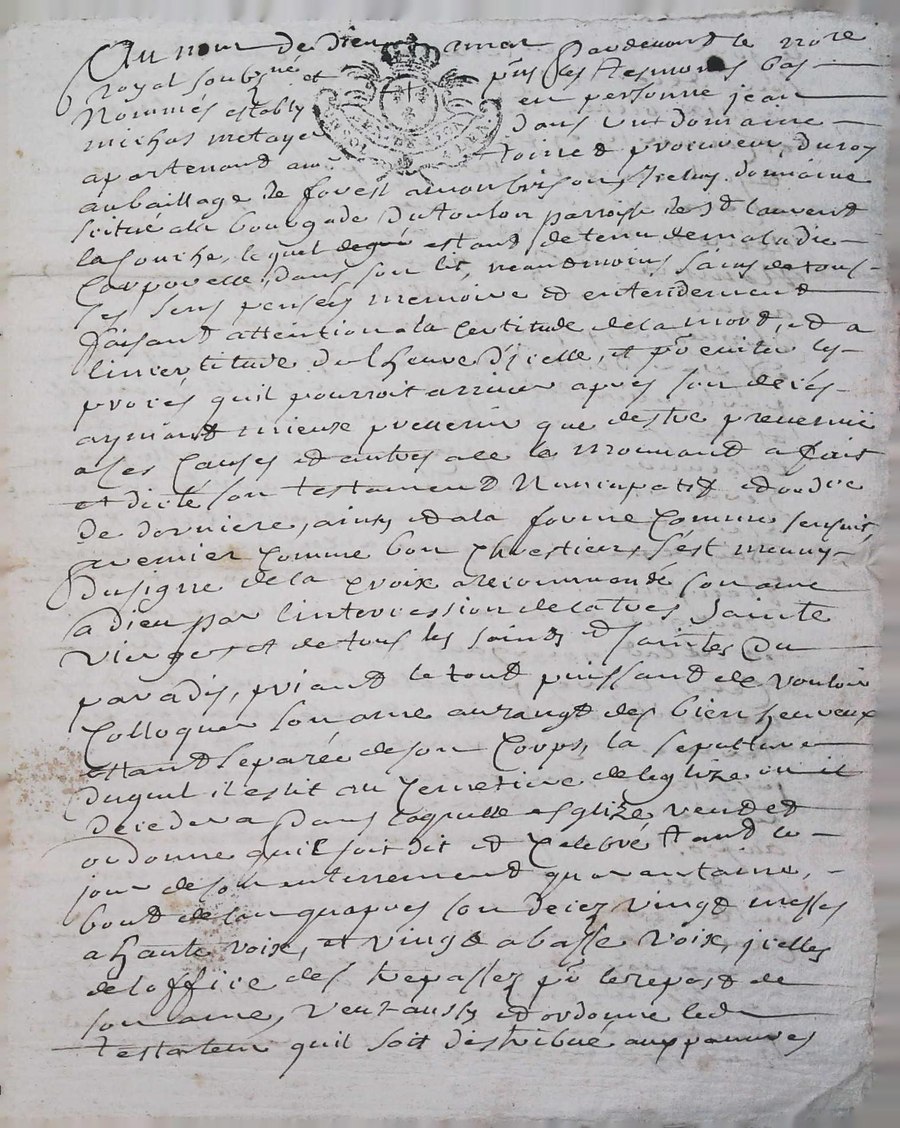 Au nom de dieu amen Pardevant le no.re
royal soubz.né et p.ns les tesmoins bas
nommés estably en personne jean
michas metayer dans un domaine
apartenant au procureur du roy
au baillage de forest a monbrison, jceluy domaine
scitué a la bourgade du toulon parroisse de St laurent
la conche, lequel estant detenu de maladie
corporelle, dans son lit, neandmoins sains de tous
ses sens pensées memoire et entendement
faisant attention a la certitude de la mort, et a
lincertitude de lheure d'jcelle, et po.r eviter les
procés quil pourroit arriver apres son decés
aymant mieux prevenir que destre prevenu
a ces causes et autres a ce le mouvant a fait
et dicté son testament nuncupatif et ordre
de derniere, ainsy et a la forme comme sensuit,
premier comme bon chrestien, s'est muny
du signe de la croix a recommandé son ame
a dieu par l'intercession de la tres sainte
vierge et de tous les saints et saintes du
paradis, priant le tout puissant de vouloir
colloquer son ame au rang des bien heureux
estant separée de son corps, la sepulture
duquel il eslit au cemetiere de leglize ou il
decedera dans laquelle esglize veut et
ordonne quil soit dit et celebré tant le
jour de son enterrement quarantaine,
bout de lan quapres son decez vingt messes
a haute voix, et vingt a basse voix, jcelles
de loffice des trepassez po.r le repost de
son ame, veut aussy et ordonne led.
testateur quil soit distribué aux pauvres